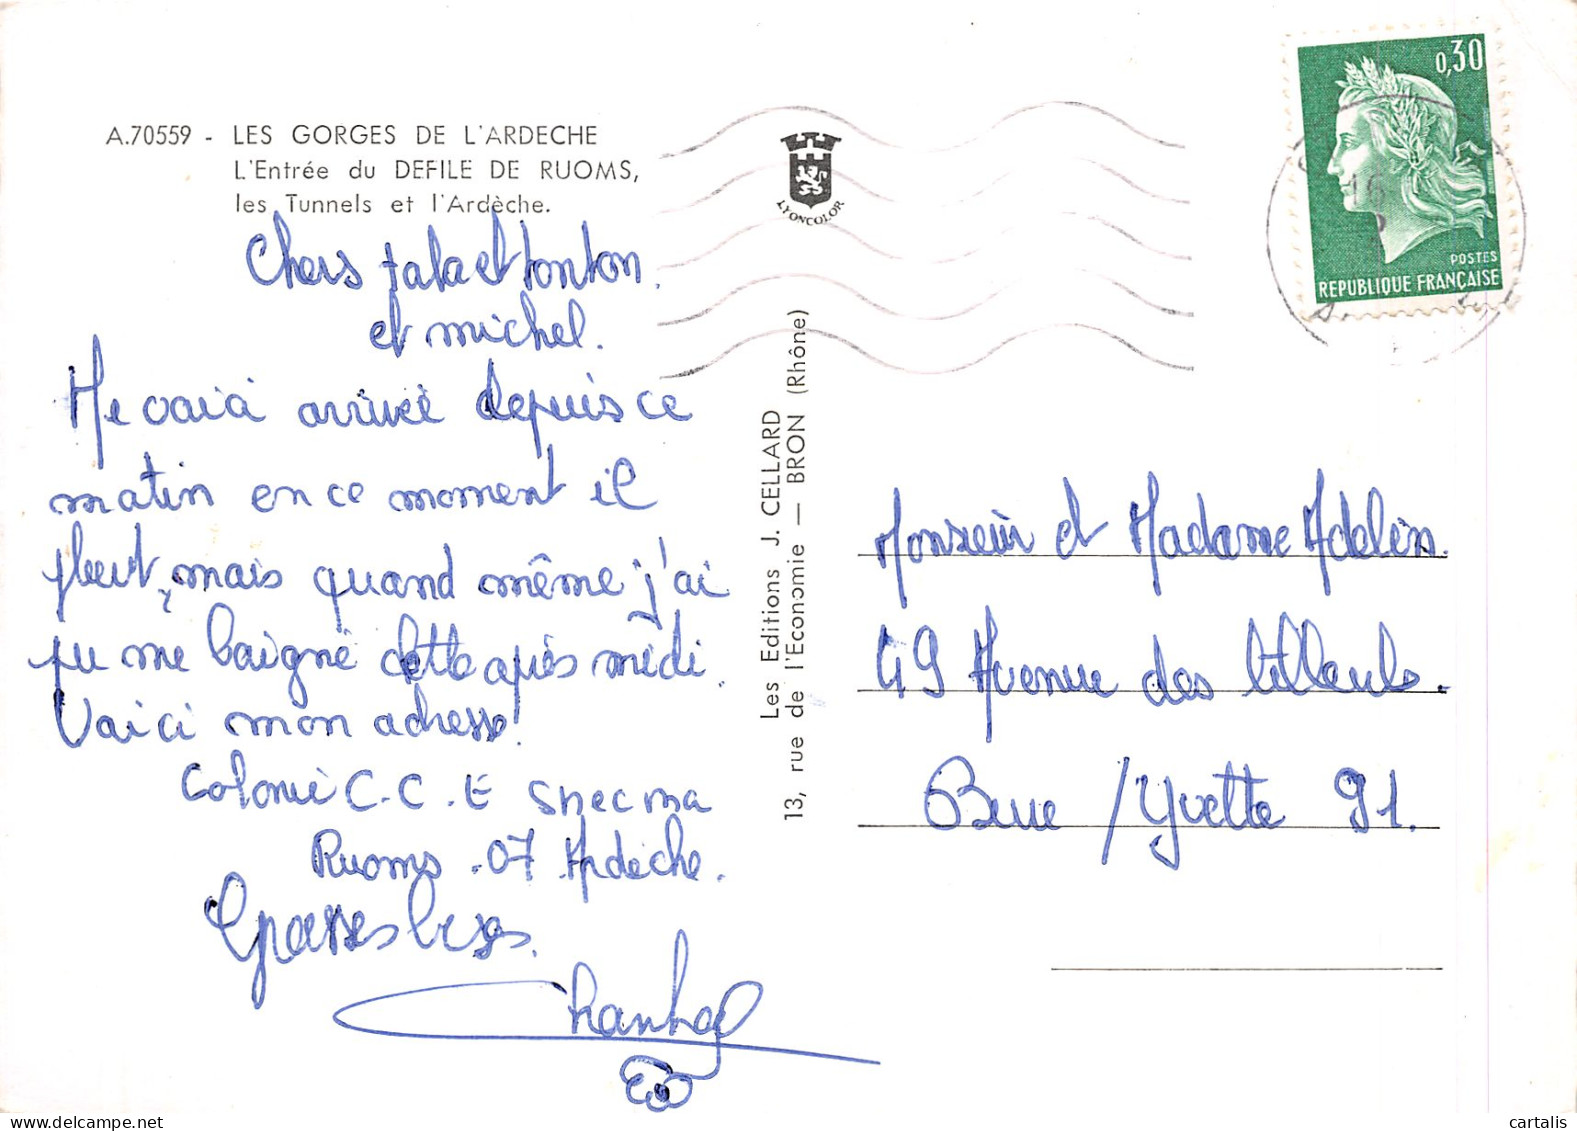 A.70559 - LES GORGES DE L'ARDECHE
L'Entrée du DEFILE DE RUOMS,
les Tunnels et l'Ardèche.
Chers tata et tonton
et michel.
Me vaici arrivée depuis ce
matin en ce moment il
pleut, mais quand même j'ai
pu me baigné cette après midi.
Vaici mon adresse!
Colonie C.C.E Snecma
Ruoms -07 Ardèche.
Grosses bises.
Chantal
LYONCOLOR
Les Editions J. CELLARD
13, rue de l'Economie — BRON (Rhône)
0,30
POSTES
REPUBLIQUE FRANÇAISE
Monsieur et Madame Adelin.
49 Avenue des tilleuls.
Bure /Yvette 91.
www.delcampe.net
cartalis